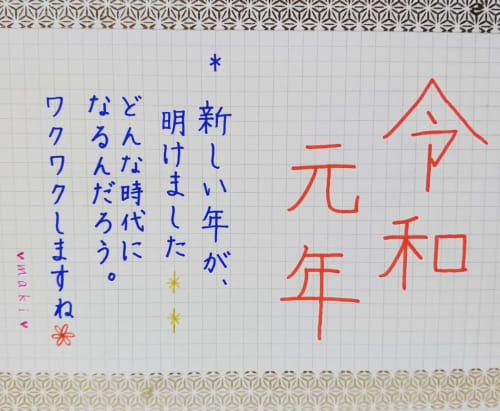 令和
元年
*新しい年が、
明けました
どんな時代に
なるんだろう。
ワクワクしますね
maki